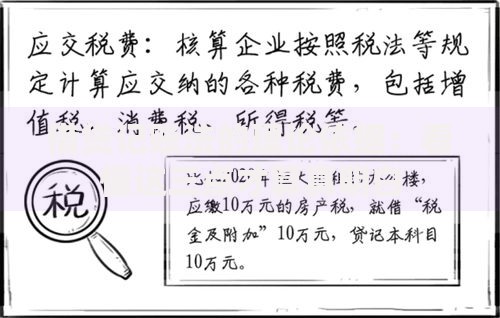 应交税费：核算企业按照税法等规
定计算应交纳的各种税费，包括增
值税、消费税、所得税等。
税
应缴10万元的房产税，就借“税
金及附加”10万元，贷记本科目
10万元。